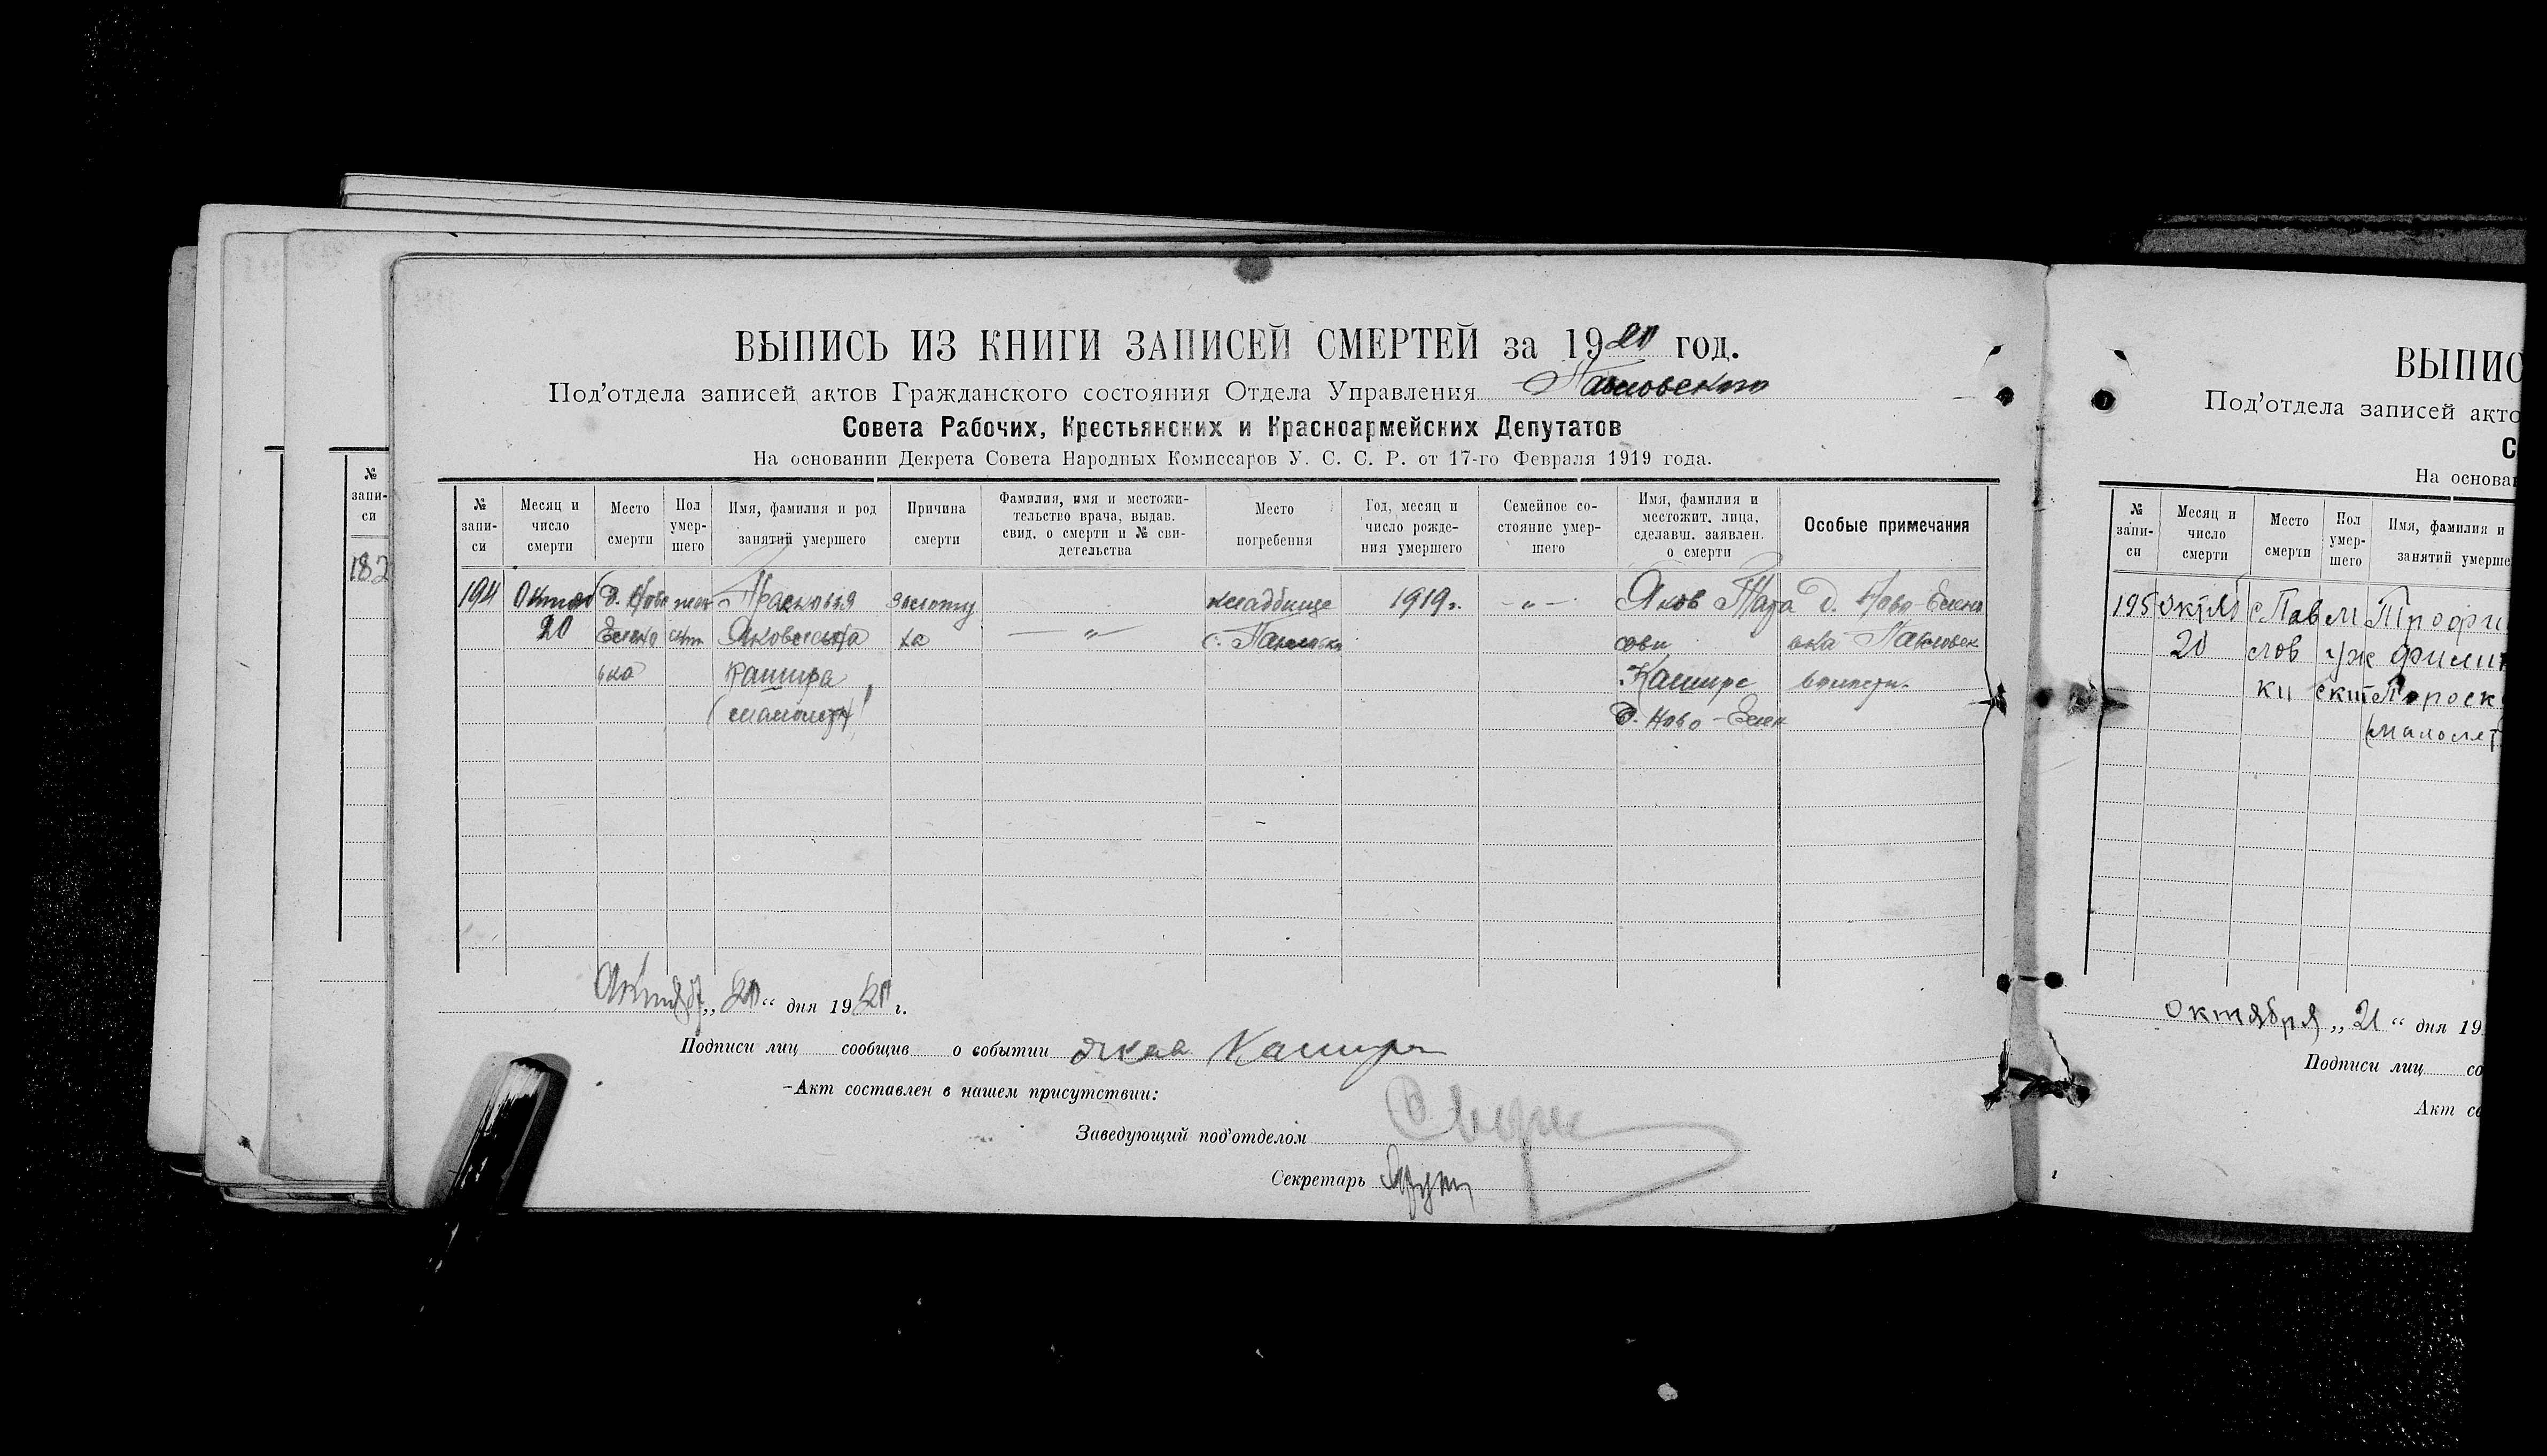 ВЫПИСЬ ИЗ КНИГИ ЗАПИСЕЙ СМЕРТЕЙ за 1920 год.
Под'отдела записей актов Гражданского состояния Отдела Управления Павловского
Совета Рабочих, Крестьянских и Красноармейских Депутатов
На основании Декрета Совета Народных Комиссаров У. С. С. Р. от 17-го Февраля 1919 года.
№ запи-
си
182
№ запи-
си
Месяц и
число
смерти
Место
смерти
Пол
умер-
шего
Имя, фамилия и род
занятий умершего
Причина
смерти
Фамилия, имя и местожи-
тельство врача, выдав.
свид. о смерти и № сви-
детельства
Место
погребения
Год, месяц и
число рожде-
ния умершего
Семейное со-
стояние умер-
шего
Имя, фамилия и
местожит. лица,
сделавш. заявлен.
о смерти
Особые примечания
194
20
д. Ново
Елено
вка
жен
Прасковья
Яковлевна
Кашира
золоту
ха
— " —
кладбище
с. Павловки
1919 г.
- " -
Яков Тара
сови
Кашире
д. Ново-Елен
д. Ново-Елено
вка Павловск
волости.
Октября „20“ дня 1920 г.
Подписи лиц сообщив о событии Яков Кашира
Акт составлен в нашем присутствии:
Заведующий под'отделом
Секретарь
ВЫПИС
Под'отдела записей акто
С
На основан
№ запи-
си
Месяц и
число
смерти
Место
смерти
Пол
умер-
шего
Имя, фамилия и
занятий умерше
195
20
с Пав
лов
ки
М
уж
ской
Трофи
Филип
(малолет
октября „21“ дня 19
Подписи лиц со
Акт со